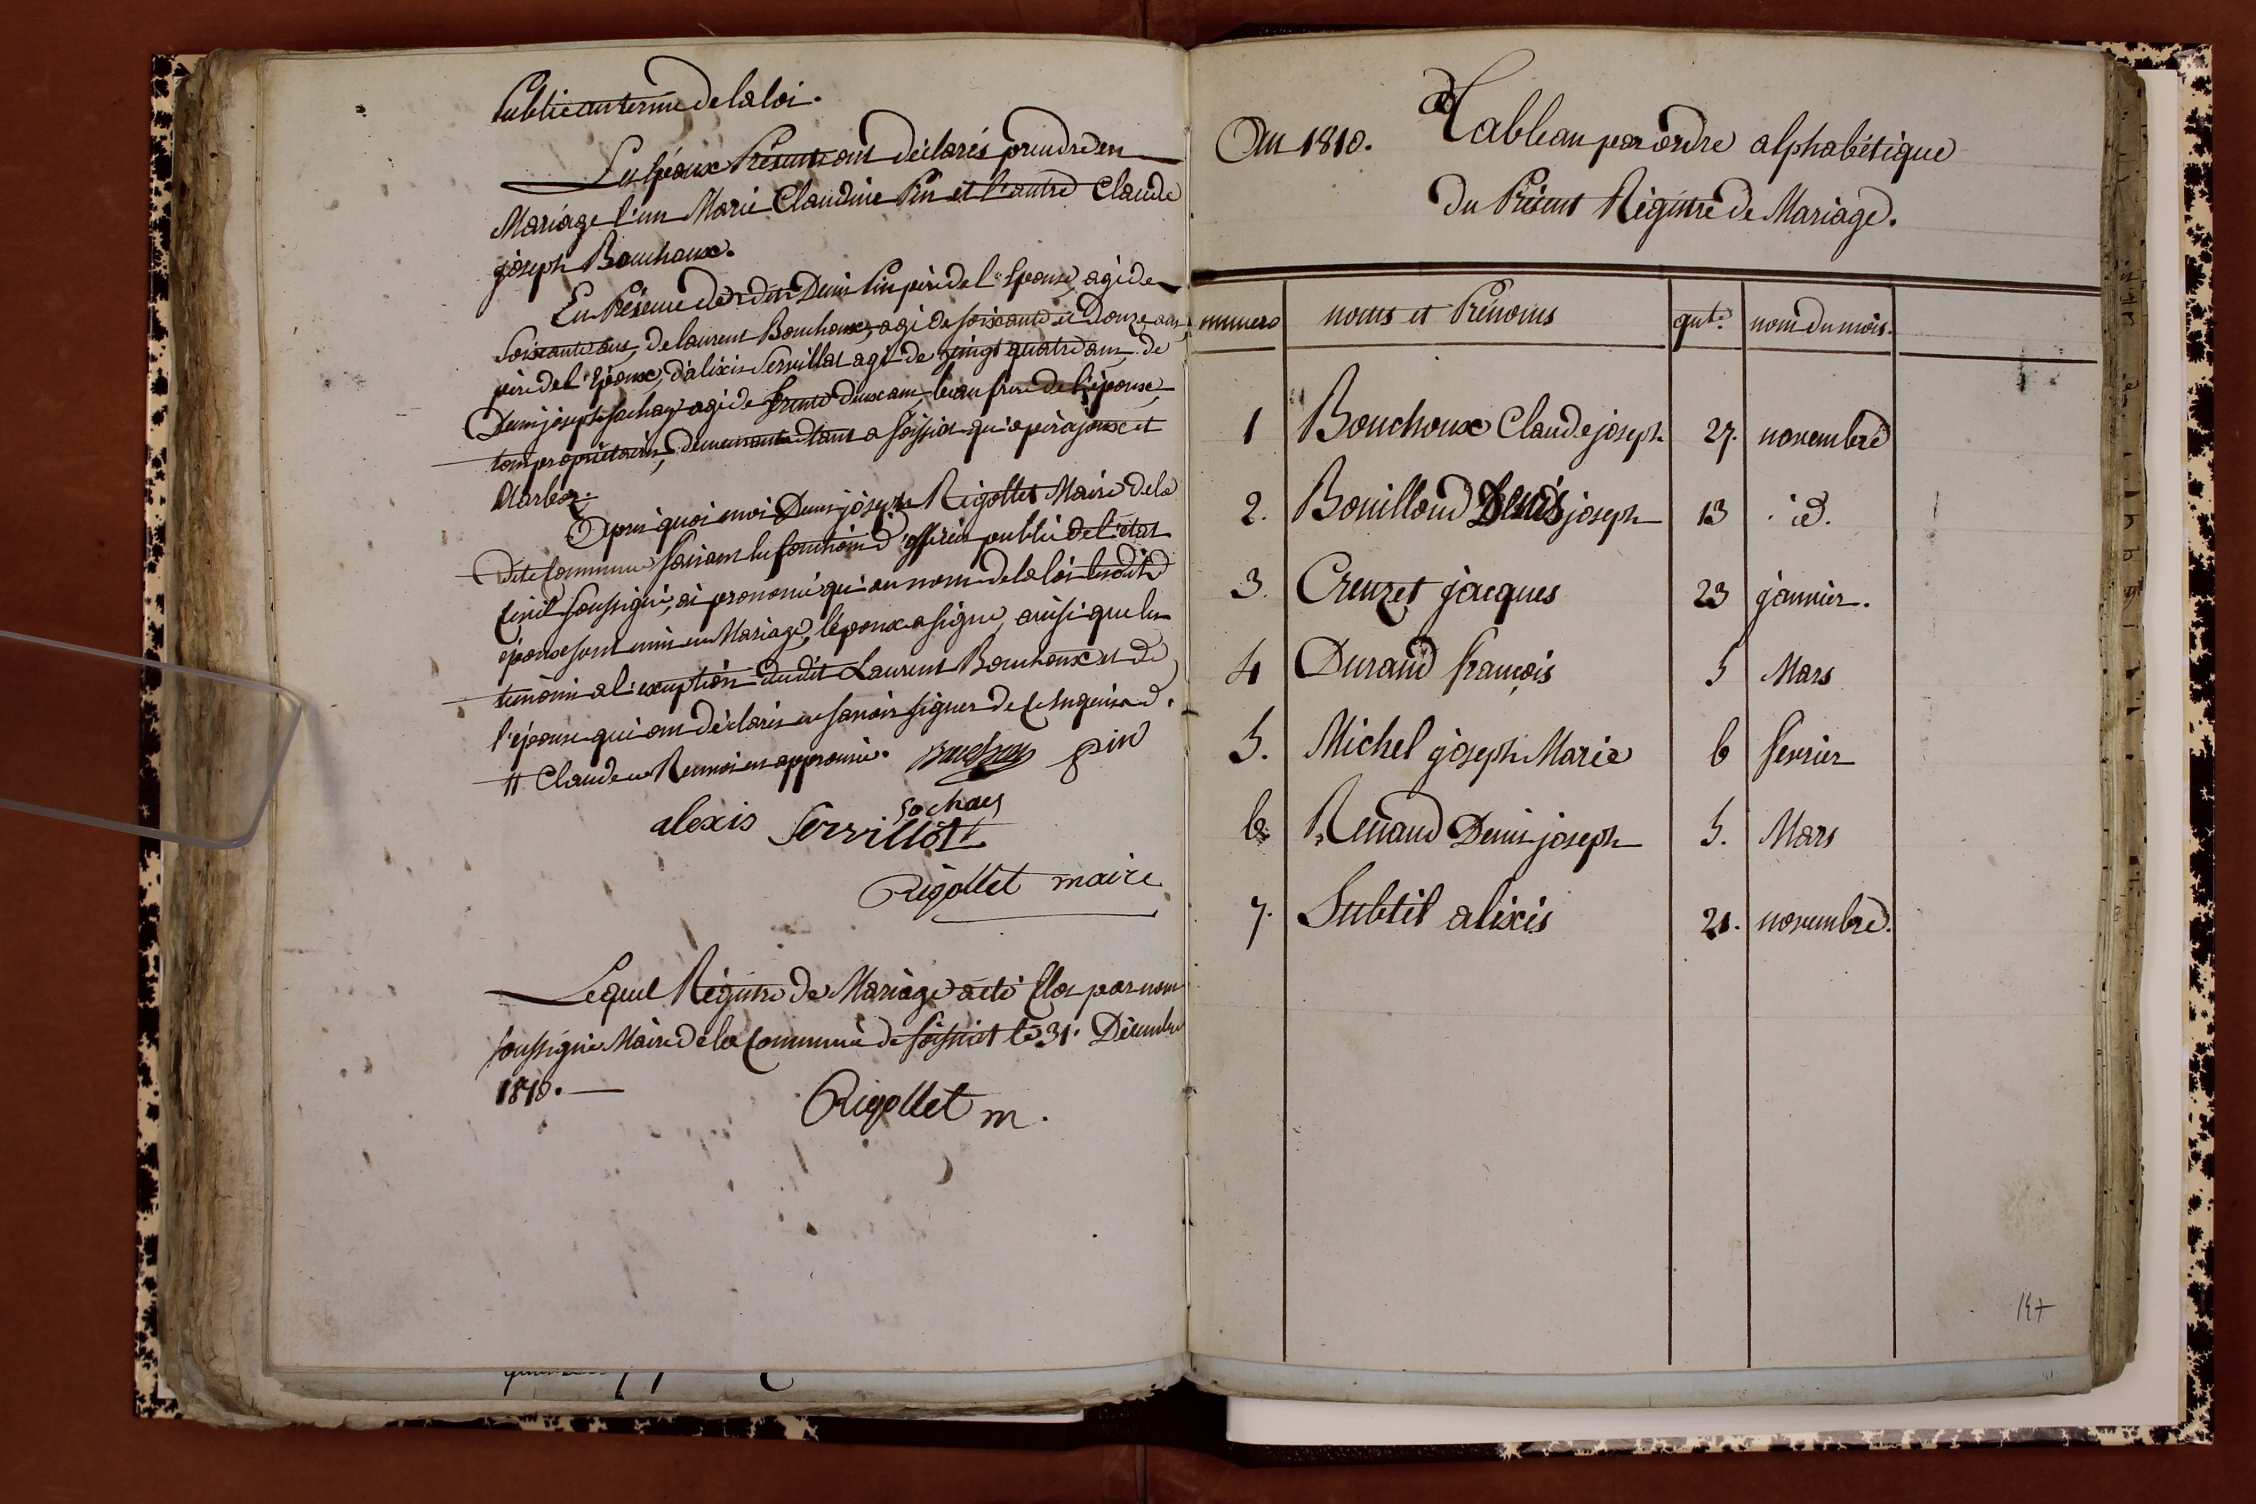 Publié au terme de la loi.
Les Epoux Présents ont déclarés prendre en
Mariage l'un Marie Claudine Pin et l'autre Claude
joseph Bouchoux.
En Présence de Denis Pin père de l'Epouse, agé de
soixante ans, de laurent Bouchoux, agé de soixante et douze ans,
père de l'Epoux, d'alixis Servillat agé de vingt quatre ans, de
Denis joseph Sochay agé de trente deux ans, beau frère de l'épouse,
tous propriétaires, demeurants à Soissiat qu'à perajoux et
Marboz.
Après quoi moi Denis joseph Rigollet Maire de la
dite Commune faisant les fonctions d'officier public de l'état
Civil soussigné, ai prononcé qu'au nom de la loi lesdits
épouse sont unis en Mariage, l'époux a signé, ainsi que les
témoins a l'exception dudit Laurent Bouchoux et de
l'épouse qui ont déclarés ne savoir signer de ce enquis
# Claude Renvoi en approuvé. pin
Sochay
alexis Servillat
Rigollet maire
Lequel Régistre de Mariage a été Clos par nous
soussigné Maire de la Commune de Soissiat le 31. Décembre
1810.
Rigollet m.
An 1810. Tableau par ordre alphabétique
du Présent Régistre de Mariage.
numero noms et Prénoms qnt. nom du mois.
1 Bouchoux Claude joseph 27. novembre
2. Bouilloud Denis joseph 13 . id.
3. Creuzet jacques 23 janvier.
4 Durand françois 5 Mars
5. Michel joseph Marie 6 fevrier
6. Renaud Denis joseph 5. Mars
7. Subtil alixis 21. novembre.